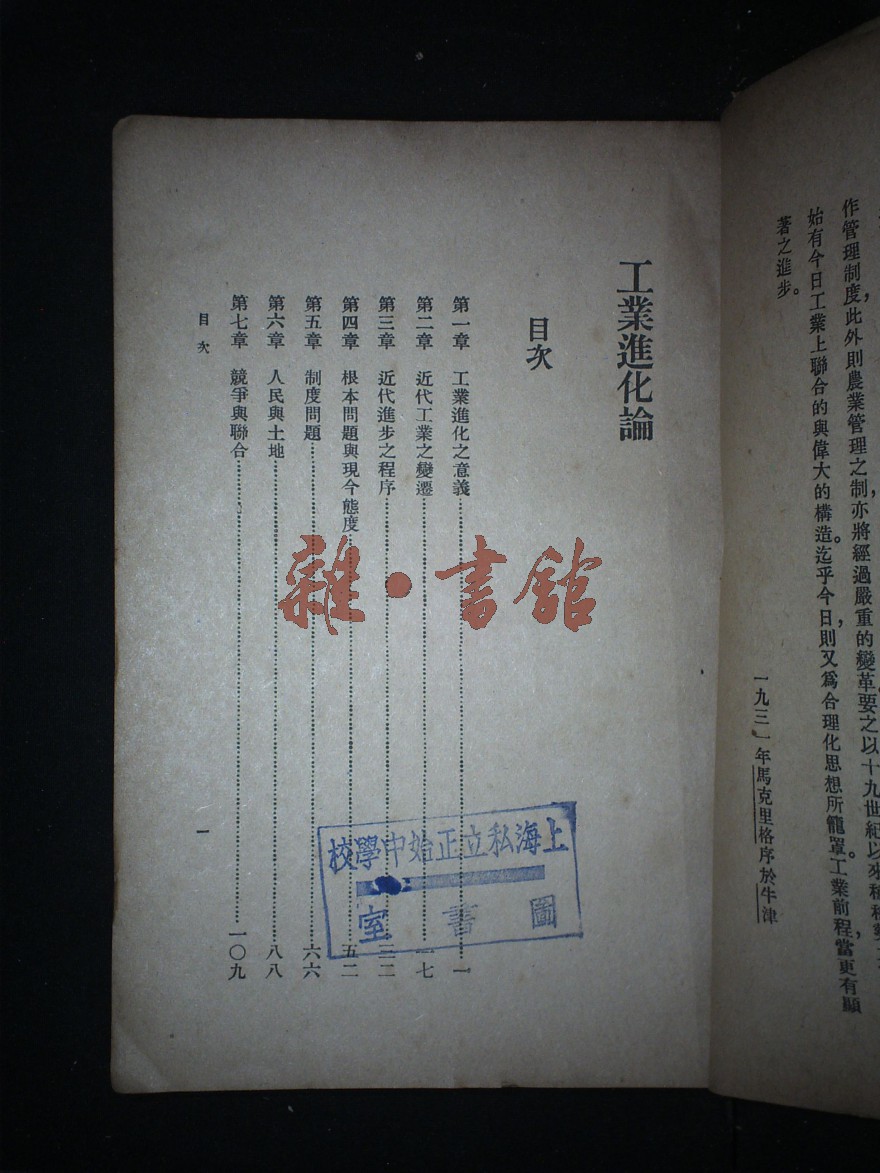 作管理制度，此外則農業管理之制，亦將經過嚴重的變革。要之以十九世紀以來
始有今日工業上聯合的與偉大的構造。迄乎今日，則又爲合理化思想所籠罩。工業前程，當更有顯
著之進步。
一九三一年馬克里格序於牛津
工業進化論
目次
第一章 工業進化之意義……一
第二章 近代工業之變遷……一七
第三章 近代進步之程序……三二
第四章 根本問題與現今態度……五二
第五章 制度問題……六六
第六章 人民與土地……八八
第七章 競爭與聯合……一〇九
目次
一
上海私立正始中學校
圖書室
雜·書館